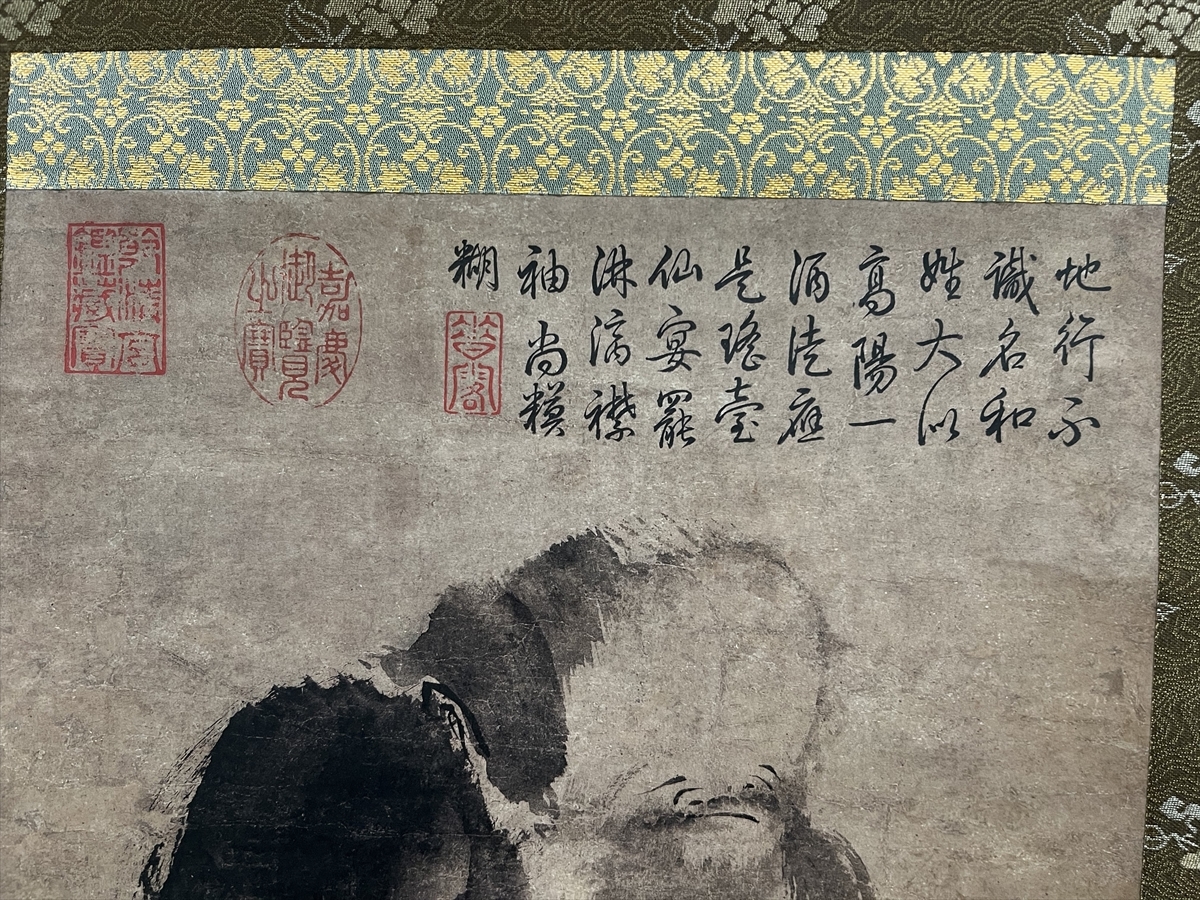 地行不
識名和
姓大似
高陽一
酒徒應
是瑤臺
仙宴罷
淋漓襟
袖尚糢
糊
嘉慶
御覽
之寶
鑑藏寶